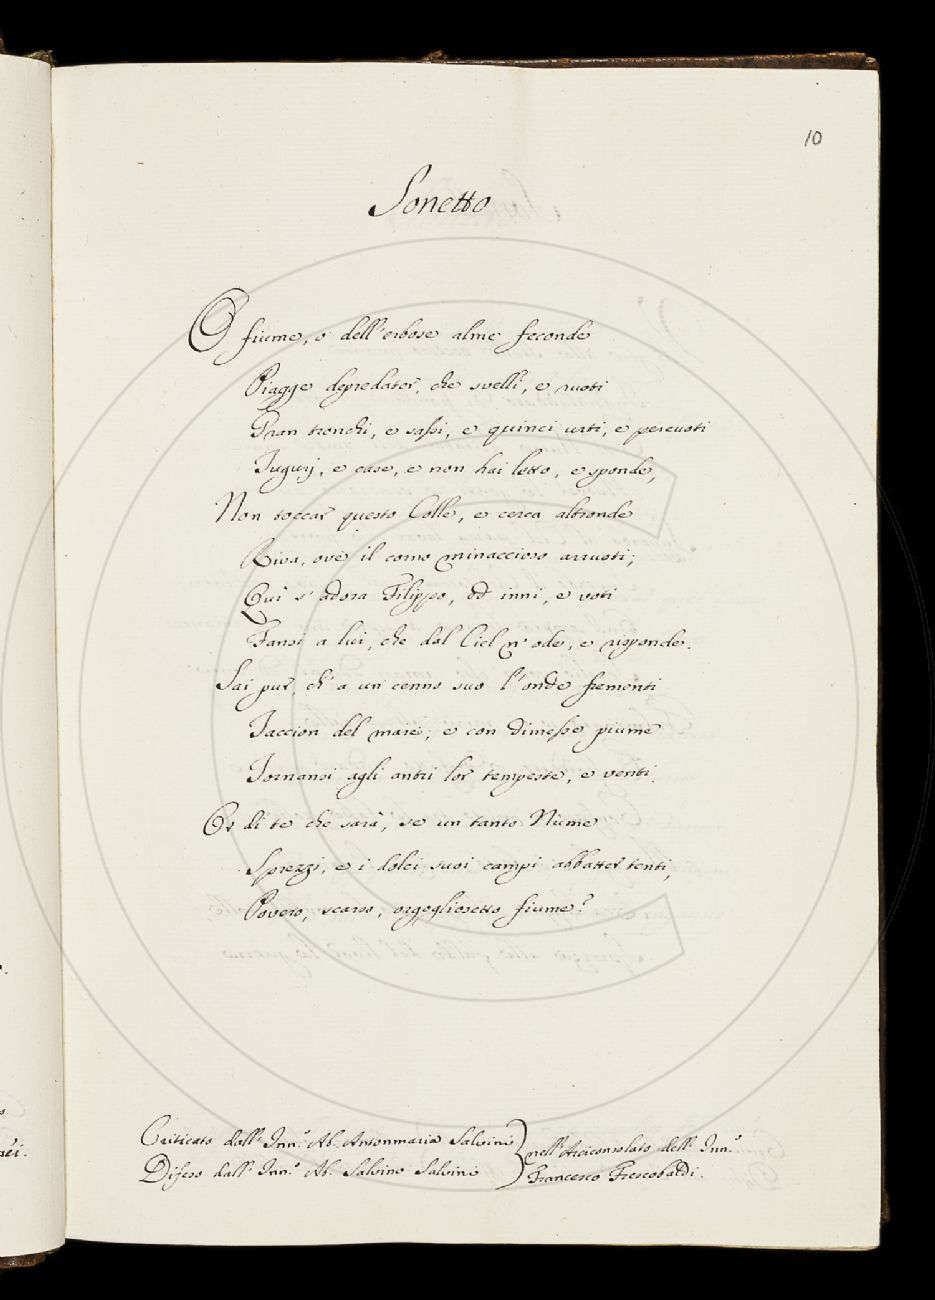 10
Sonetto
O fiume, o dell'erbose alme feconde
Piagge depredator, che svelli, e ruoti
Gran tronchi, e sassi, e quinci urti, e percuoti
Tugurj, e case, e non hai letto, e sponde,
Non toccar questo Colle, e cerca altronde
Riva, ove il corno minaccioso arruoti;
Qui s'adora Filippo, ed inni, e voti
Fansi a lui, che dal Ciel n'ode, e risponde.
Sai pur, ch'a un cenno suo l'onde frementi
Taccion del mare; e con dimesse piume
Tornansi agli antri lor tempeste, e venti.
Or di te che sarà, se un tanto Nume
Sprezzi, e i dolci suoi campi abbatter tenti,
Povero, scarso, orgogliosetto fiume?
Criticato dall' Inn.º Ab. Antonmaria Salvini } nell'Arciconsolato dell' Inn.º
Difeso dall' Inn.º Ab. Salvino Salvini } Francesco Frescobaldi.